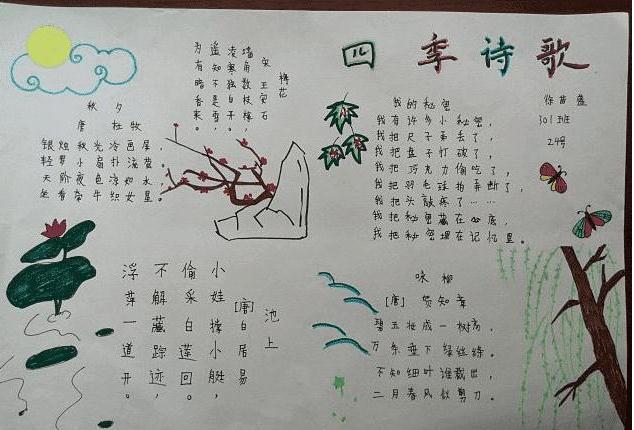 四季诗歌
301班
24号
秋夕
唐 杜牧
银烛秋光冷画屏，
轻罗小扇扑流萤。
天阶夜色凉如水，
坐看牵牛织女星。
梅花
宋 王安石
墙角数枝梅，
凌寒独自开。
遥知不是雪，
为有暗香来。
我的秘密
我有许多小秘密，
我把尺子弄丢了，
我把盘子打破了，
我把巧克力偷吃了，
我把羽毛球拍弄断了，
我把头敲疼了……
我把秘密藏在心底，
我把秘密埋在记忆里。
池上
[唐]白居易
小娃撑小艇，
偷采白莲回。
不解藏踪迹，
浮萍一道开。
咏柳
[唐] 贺知章
碧玉妆成一树高，
万条垂下绿丝绦。
不知细叶谁裁出，
二月春风似剪刀。